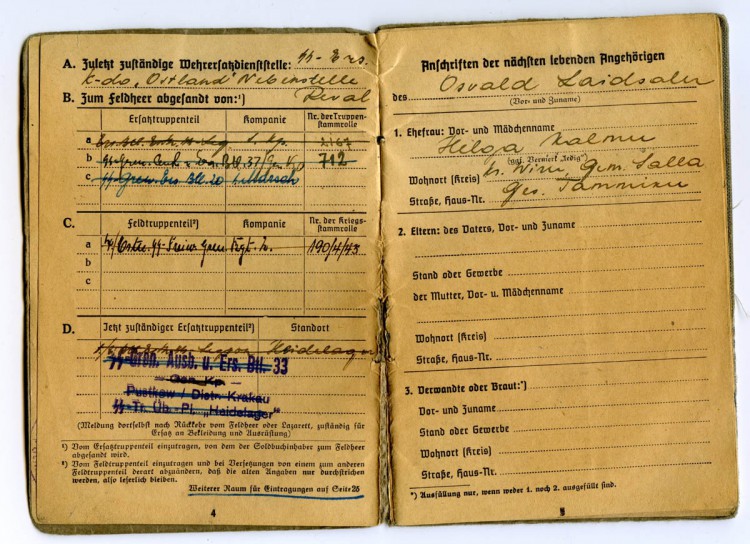 A. Zuletzt zuständige Wehrersatzdienststelle: SS-Ers.
K-do „Ostland" Nebenstelle
B. Zum Feldheer abgesandt von:¹) Reval
Ersatztruppenteil Kompanie Nr. der Truppenstammrolle
a
b 712
c
C. Feldtruppenteil²) Kompanie Nr. der Kriegsstammrolle
a 4/Estn. SS-Freiw. Gren. Regt. 190/4/43
b
c
D. Jetzt zuständiger Ersatztruppenteil²) Standort
Heidelager
SS-Gren. Ausb. u. Ers. Btl. 33
Gen. Kp.
Pustkow / Distr. Krakau
SS-Tr. Üb. Pl. „Heidelager"
(Meldung dortselbst nach Rückkehr vom Feldheer oder Lazarett, zuständig für
Ersatz an Bekleidung und Ausrüstung)
¹) Vom Ersatztruppenteil einzutragen, von dem der Soldbuchinhaber zum Feldheer
abgesandt wird.
²) Vom Feldtruppenteil einzutragen und bei Versetzungen von einem zum anderen
Feldtruppenteil derart abzuändern, daß die alten Angaben nur durchstrichen
werden, also leserlich bleiben.
Weiterer Raum für Eintragungen auf Seite
4
Anschriften der nächsten lebenden Angehörigen
des Osvald Laidsalu
(Vor- und Zuname)
1. Ehefrau: Vor- und Mädchenname
Helga
(ggf. Vermerk „ledig")
Wohnort (Kreis) Kr. Wiru Gem. Salla
Straße, Haus-Nr. Ges. Tammiku
2. Eltern: des Vaters, Vor- und Zuname
Stand oder Gewerbe
der Mutter, Vor- u. Mädchenname
Wohnort (Kreis)
Straße, Haus-Nr.
3. Verwandte oder Braut:*)
Vor- und Zuname
Stand oder Gewerbe
Wohnort (Kreis)
Straße, Haus-Nr.
*) Ausfüllung nur, wenn weder 1. noch 2. ausgefüllt sind.
5